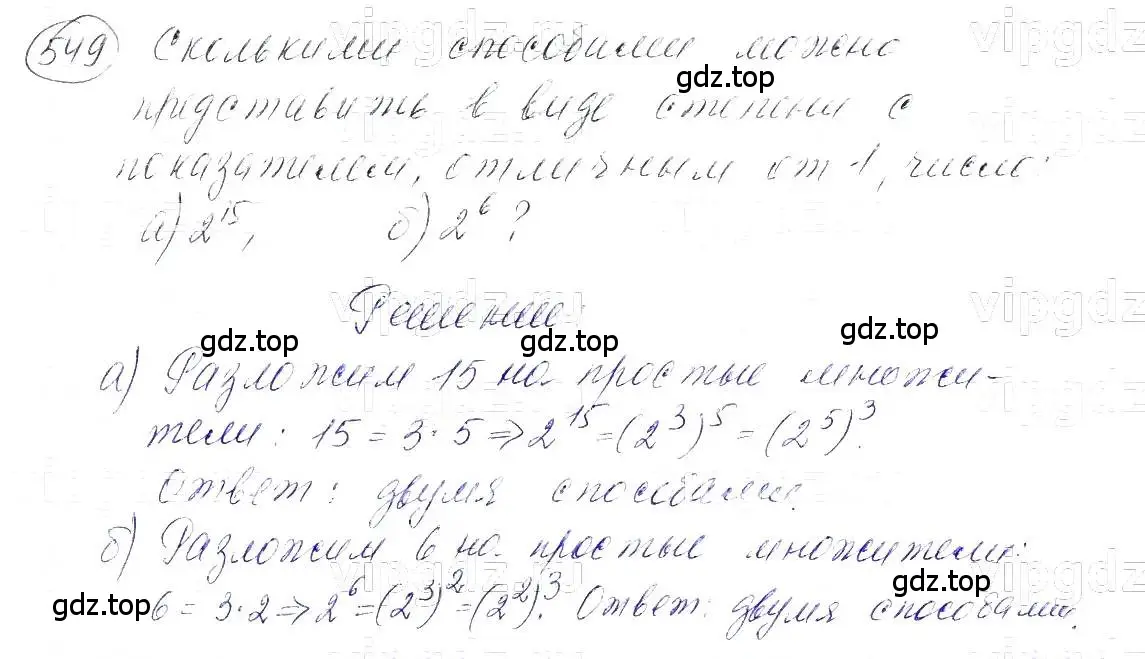 549 Сколькими способами можно
представить в виде степени с
показателем, отличным от 1, число:
а) 2^15, б) 2^6?
Решение:
а) Разложим 15 на простые множи-
тели: 15 = 3·5 ⇒ 2^15 = (2^3)^5 = (2^5)^3.
Ответ: двумя способами.
б) Разложим 6 на простые множители:
6 = 3·2 ⇒ 2^6 = (2^3)^2 = (2^2)^3. Ответ: двумя способами.
gdz.top
gdz.top
gdz.top
gdz.top
gdz.top
gdz.top
vipgdz.ru
vipgdz
vipgdz.ru
vipgdz